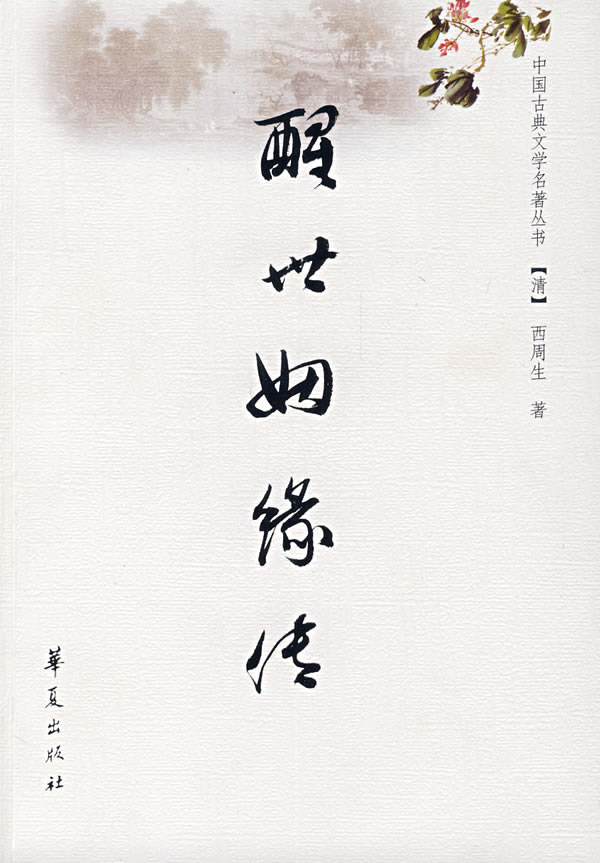 中国古典文学名著丛书【清】西周生 著
醒世姻缘传
華夏出版社